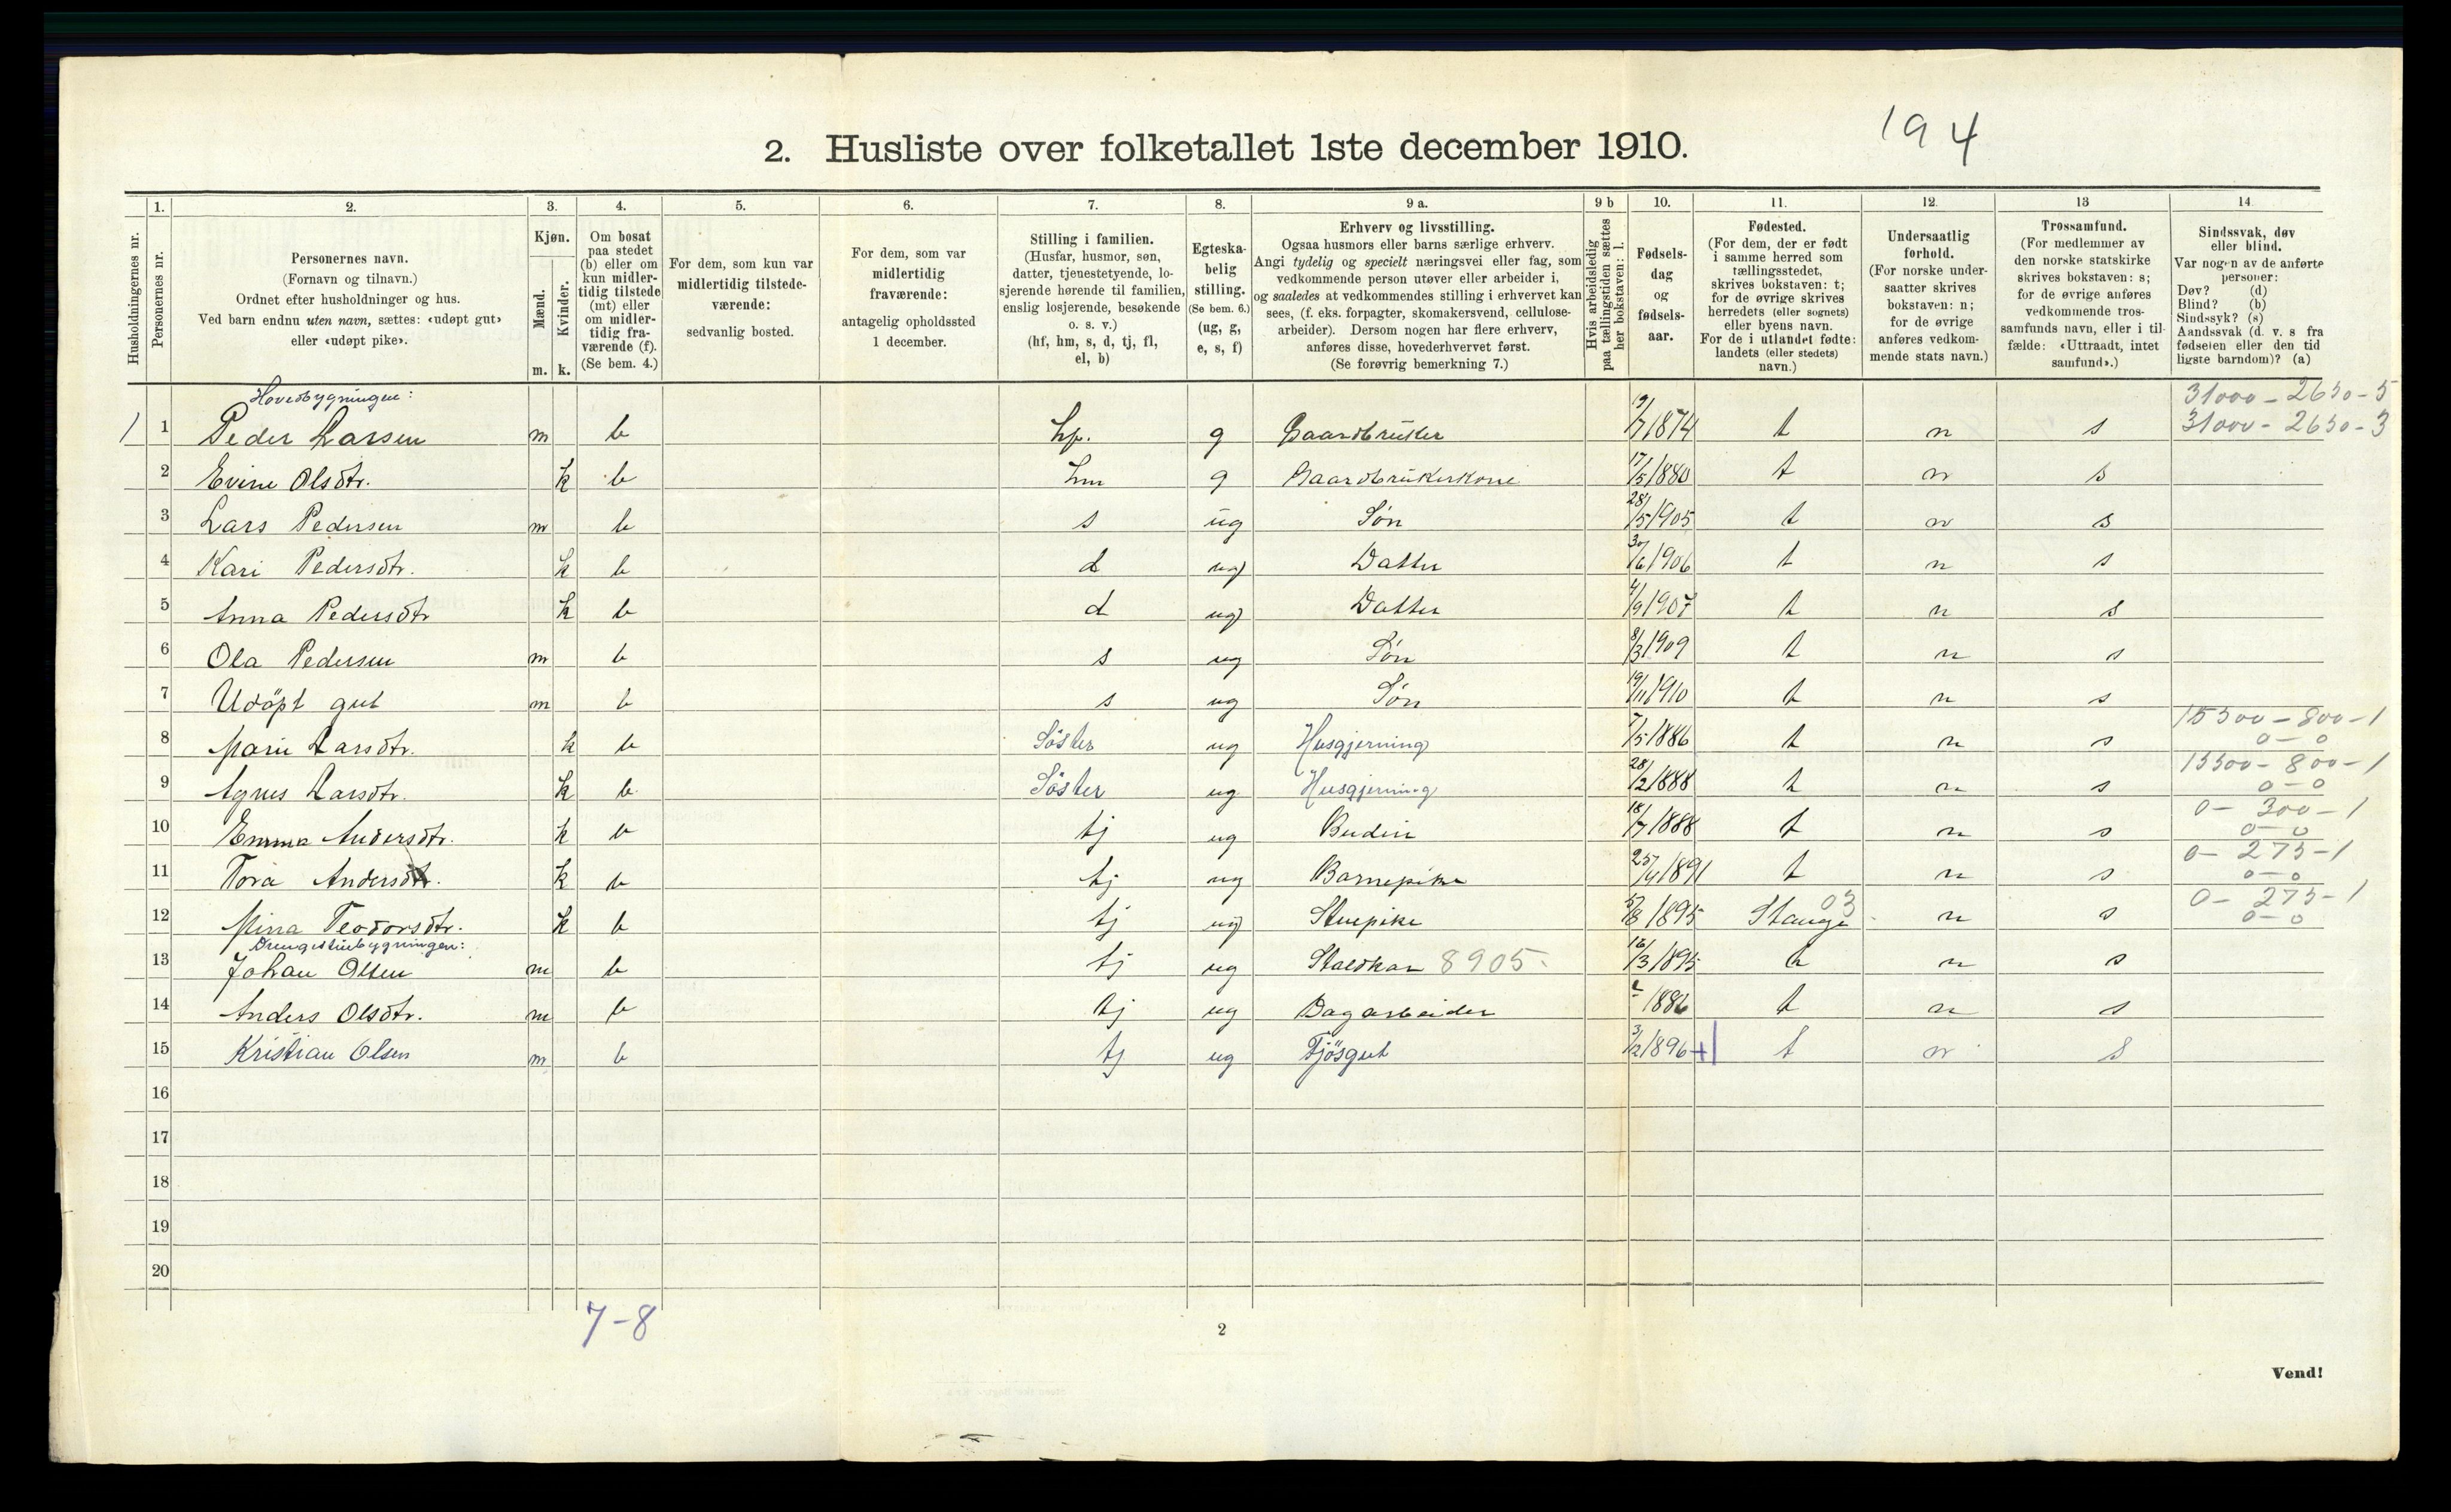 194
2. Husliste over folketallet 1ste december 1910.
Husholdningernes nr.
1. Personernes nr.
2. Personernes navn.
(Fornavn og tilnavn.)
Ordnet efter husholdninger og hus.
Ved barn endnu uten navn, sættes: «udøpt gut»
eller «udøpt pike».
3. Kjøn.
Mænd. m.
Kvinder. k.
4. Om bosat
paa stedet
(b) eller om
kun midler-
tidig tilstede
(mt) eller
om midler-
tidig fra-
værende (f).
(Se bem. 4.)
5. For dem, som kun var
midlertidig tilstede-
værende:
sedvanlig bosted.
6. For dem, som var
midlertidig
fraværende:
antagelig opholdssted
1 december.
7. Stilling i familien.
(Husfar, husmor, søn,
datter, tjenestetyende, lo-
sjerende hørende til familien,
enslig losjerende, besøkende
o. s. v.)
(hf, hm, s, d, tj, fl,
el, b)
8. Egteska-
belig
stilling.
(Se bem. 6.)
(ug, g,
e, s, f)
9 a. Erhverv og livsstilling.
Ogsaa husmors eller barns særlige erhverv.
Angi tydelig og specielt næringsvei eller fag, som
vedkommende person utøver eller arbeider i,
og saaledes at vedkommendes stilling i erhvervet kan
sees, (f. eks. forpagter, skomakersvend, cellulose-
arbeider). Dersom nogen har flere erhverv,
anføres disse, hovederhvervet først.
(Se forøvrig bemerkning 7.)
9 b Hvis arbeidsledig
paa tællingstiden sættes
her bokstaven: l.
10. Fødsels-
dag
og
fødsels-
aar.
11. Fødested.
(For dem, der er født
i samme herred som
tællingsstedet,
skrives bokstaven: t;
for de øvrige skrives
herredets (eller sognets)
eller byens navn.
For de i utlandet fødte:
landets (eller stedets)
navn.)
12. Undersaatlig
forhold.
(For norske under-
saatter skrives
bokstaven: n;
for de øvrige
anføres vedkom-
mende stats navn.)
13 Trossamfund.
(For medlemmer av
den norske statskirke
skrives bokstaven: s;
for de øvrige anføres
vedkommende tros-
samfunds navn, eller i til-
fælde: «Uttraadt, intet
samfund».)
14 Sindssvak, døv
eller blind.
Var nogen av de anførte
personer:
Døv? (d)
Blind? (b)
Sindssyk? (s)
Aandssvak (d. v. s fra
fødselen eller den tid
ligste barndom)? (a)
Hovedbygningen: 31000 - 2650 - 5
1 1 Peder Larsen m b hf. g Gaardbruker 9/7 1874 t n s 31000 - 2650 - 3
2 Evine Olsdtr. k b hm g Gaardbrukerkone 17/5 1880 t n s
3 Lars Pedersen m b s ug Søn 28/5 1905 t n s
4 Kari Pedersdtr. k b d ug Datter 30/6 1906 t n s
5 Anna Pedersdtr k b d ug Datter 4/9 1907 t n s
6 Ola Pedersen m b s ug Søn 8/3 1909 t n s
7 Udöpt gut m b s ug Søn 19/11 1910 t n s
15500 - 800 - 1
8 Marie Larsdtr. k b Söster ug Husgjerning 7/5 1886 t n s 0 - 0
15500 - 800 - 1
9 Agnes Larsdtr. k b Söster ug Husgjerning 28/2 1888 t n s 0 - 0
0 - 300 - 1
10 Emma Andersdtr. k b tj ug Budeie 18/7 1888 t n s 0 - 0
0 - 275 - 1
11 Tora Andersdtr. k b tj ug Barnepike 25/4 1891 t n s 0 - 0
03 0 - 275 - 1
12 Mina Teodorsdtr. k b tj ug Stuepike 5/8 1895 Stange n s 0 - 0
Drengestubygningen:
13 Johan Olsen m b tj ug Staldkar 8905 16/3 1895 t n s
14 Anders Olsdtr. m b tj ug Dagarbeider 1886 t n s
15 Kristian Olsen m b tj ug Fjösgut 3/2 1896 t n s
16
17
18
19
20
7-8
2
Vend!